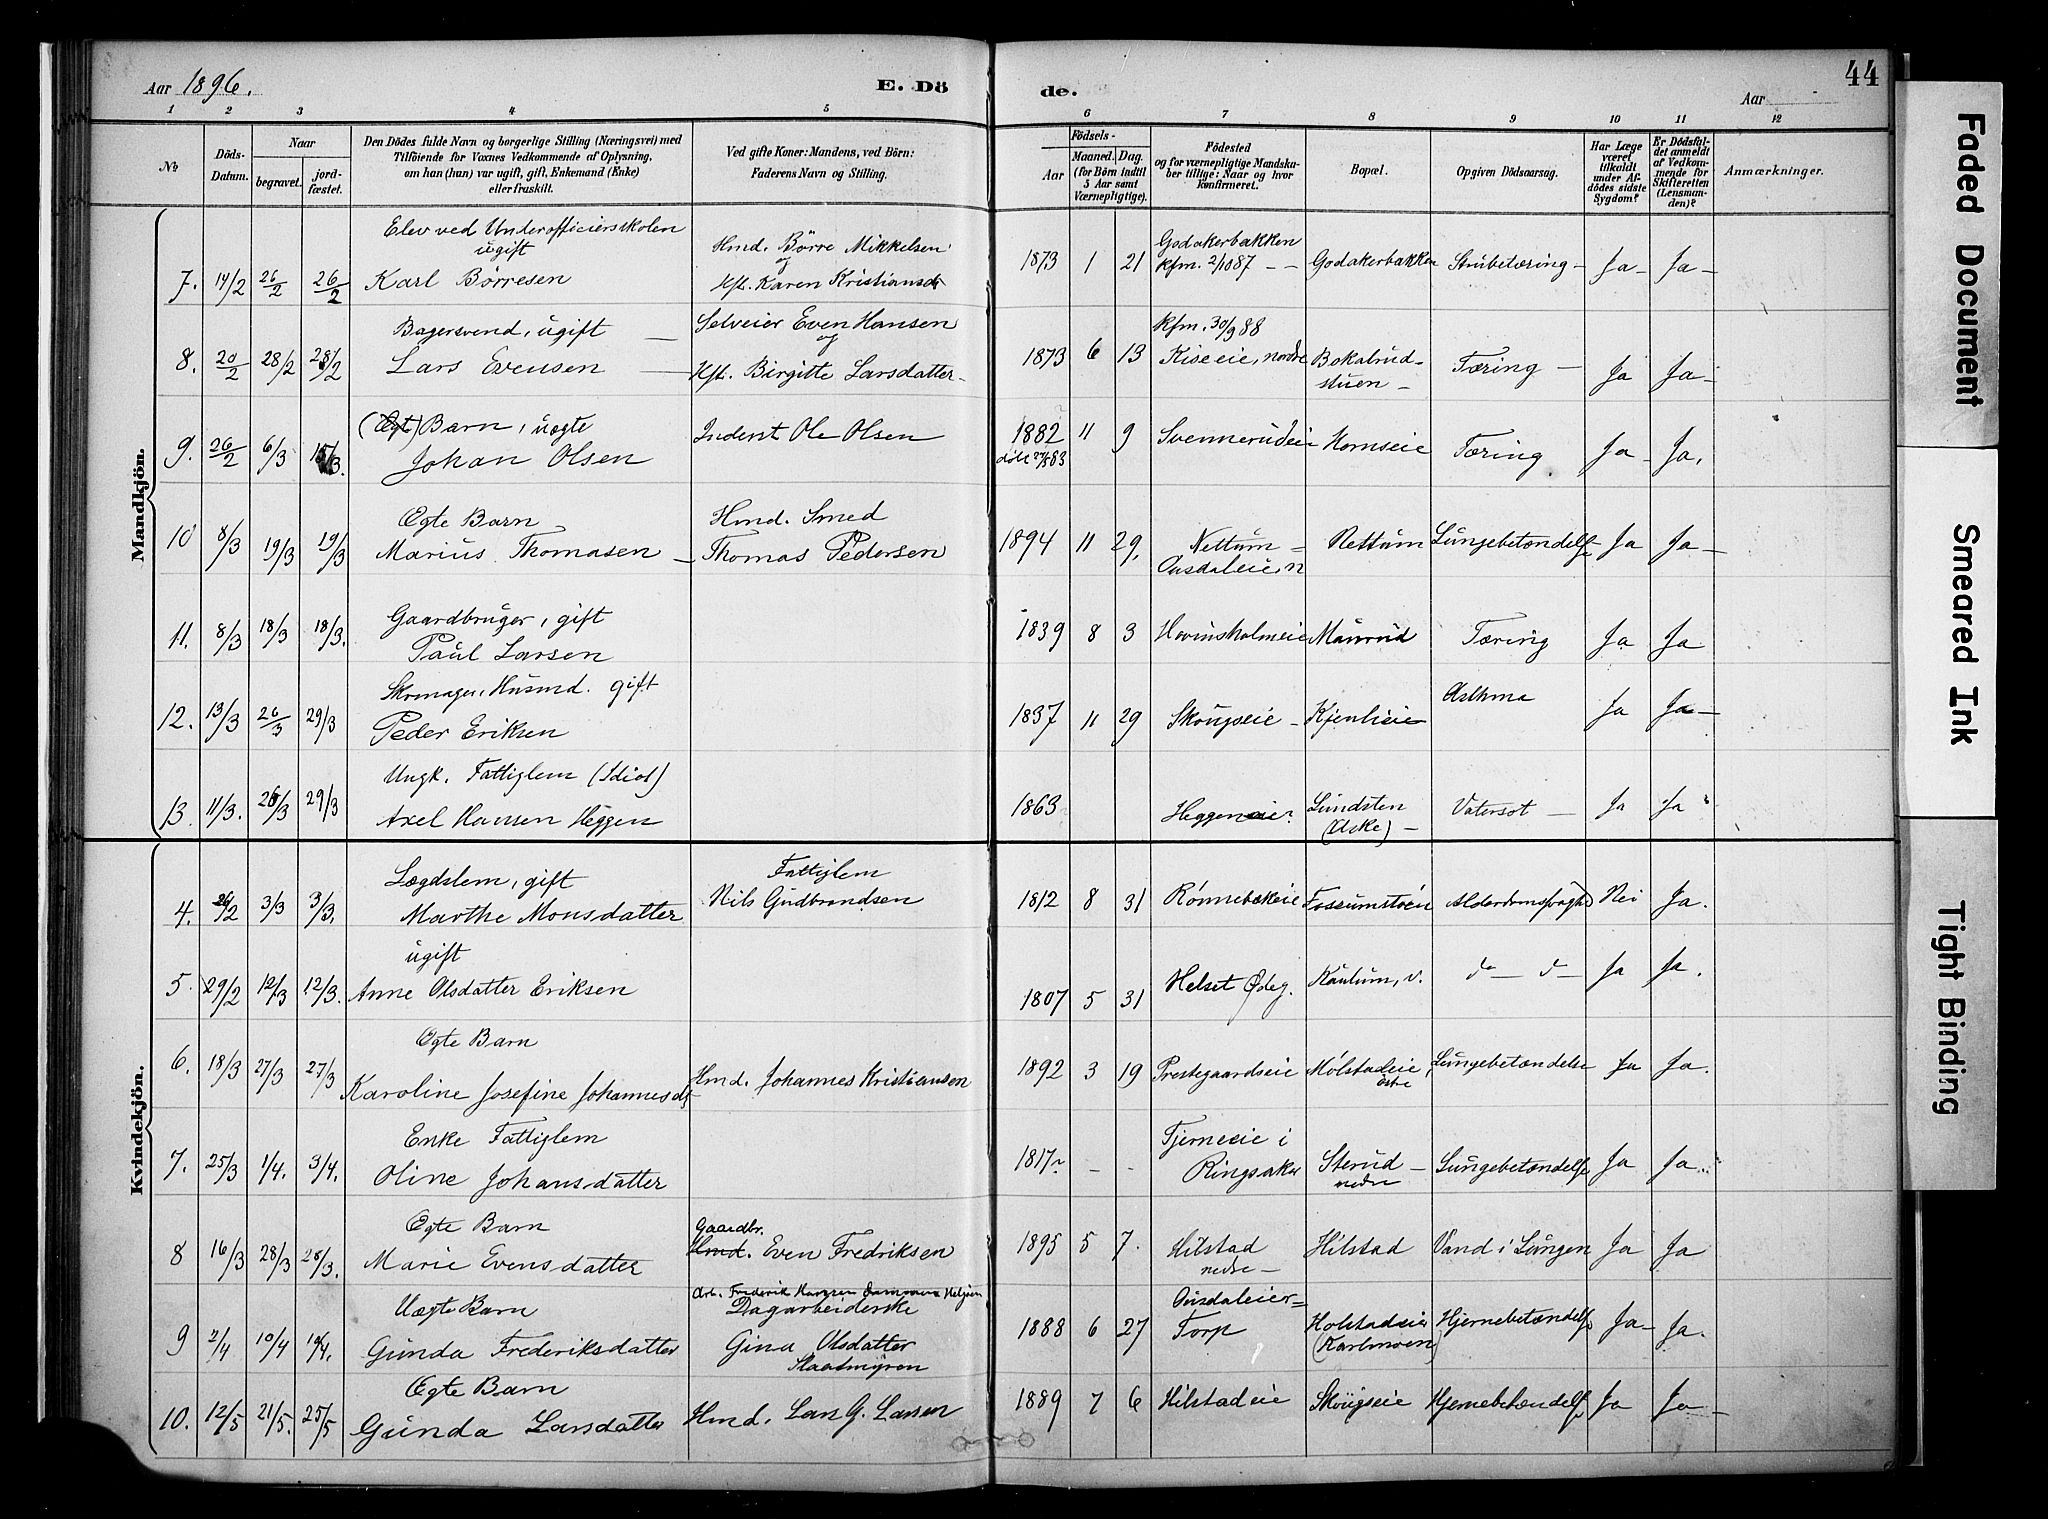 Aar 1896.
E. Dö
de.
Aar
44
1 2 3 4 5 6 7 8 9 10 11 12
№
Döds-Datum.
Naar
begravet.
jord-fæstet.
Den Dödes fulde Navn og borgerlige Stilling (Næringsvei) med
Tilföiende for Voxnes Vedkommende af Oplysning,
om han (hun) var ugift, gift, Enkemand (Enke)
eller fraskilt.
Ved gifte Koner: Mandens, ved Börn:
Faderens Navn og Stilling.
Födsels-
Aar
Maaned. Dag.
(for Börn indtil
5 Aar samt
Værnepligtige).
Födested
og for værnepligtige Mandska-
ber tillige: Naar og hvor
konfirmeret.
Bopæl.
Opgiven Dödsaarsag.
Har Læge
været
tilkaldt
under Af-
dödes sidste
Sygdom?
Er Dödsfal-
det anmeldt
af Vedkom-
mende for
Skifteretten
(Lensman-
den)?
Anmærkninger.
Mandkjön.
Elev ved Underofficiersskolen
ugift
Hmd. Börre Mikkelsen
og
Godakerbakken
7. 14/2 26/2 26/2 Karl Börresen Kft. Karen Kristiansdr 1873 1 21 kfm. 2/1087 – – Godakerbakken Strubetæring – Ja – Ja –
Bagersvend, ugift – Selveier Even Hansen
og
kfm. 30/9 88
8. 20/2 28/2 28/2 Lars Evensen – Kft. Birgitte Larsdatter – 1873 6 13 Kiseeie, nordre Bokalrud-
stuen – Tæring – Ja Ja –
(Egt) Barn, uægte
9. 26/2 6/3 15/3. Johan Olsen Inderst Ole Olsen 1882 11 9 Svennerudeie Hornseie Tæring Ja – Ja.
Egte Barn Hmd. Smed
10 8/3 19/3 19/3 Marius Thomasen – Thomas Pedersen 1894 11 29, Nettum – Rettum Lungebetændelse Ja Ja –
Gaardbruger, gift
11. 8/3 18/3 18/3. Paul Larsen 1839 8 3 Hovinsholmeie Maurud Tæring Ja Ja
Skomager, Husmd. gift
12. 13/3 26/3 29/3 Peder Eriksen 1837 11 29 Skougseie – Kjenlieie Asthma Ja Ja –
Ungk. Fattiglem (Idiot)
13. 11/3. 26/3 29/3 Axel Hansen Heggen 1863 Heggeneie? Lundsten
Vatersot – Ja Ja
Kvindekjön.
Lægdslem, gift Fattiglem
4. 26/2 3/3 3/3. Marthe Monsdatter Nils Gudbrandsen 1812 8 31 Rönnebækeie Fossumstuen Alderdomssvaghed Nei Ja.
ugift
5. 29/2 12/3 12/3. Anne Olsdatter Eriksen 1807 5 31 Helset Ødeg. Kaulum, v. do – d – Ja Ja.
Egte Barn
6. 18/3 27/3 27/3 Karoline Josefine Johannesdtr Hmd. Johannes Kristiansen 1892 3 19 Prestegaardseie Mölstadeie,
östre Lungebetændelse Ja Ja.
Enke Fattiglem
7. 25/3 1/4. 3/4. Oline Johansdatter 1817? – – Tjerneeie i
Ringsaker Sterud –
nedre Lungebetændelse Ja Ja.
Egte Barn Gaardbr.
8 16/3 28/3 28/3. Marie Evensdatter Hmd. Even Fredriksen 1895 5 7. Hilstad
nedre – Hilstad Vand i Lungen Ja Ja
Uægte Barn Arb. Frederik Hansen
Dagarbeiderske
9 2/4 10/4 10/4. Gunda Frederiksdatter Gina Olsdatter
1888 6 27 Ousdaleier –
Torp Holstadeier
(Karlmoen) Hjernebetændelse Ja – Ja.
Egte Barn
10. 12/5 21/5. 25/5 Gunda Larsdatter Hmd. Lars G. Larsen 1889 7 6 Hilstadeie Skougseie Hjernebetændelse Ja Ja –
Faded Document
Smeared Ink
Tight Binding